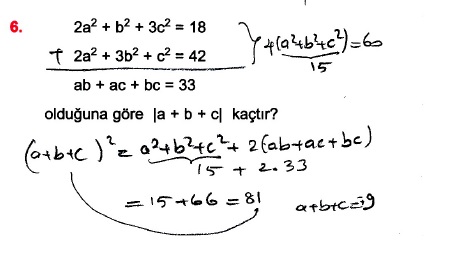 6. 2a² + b² + 3c² = 18
+ 2a² + 3b² + c² = 42
4(a²+b²+c²)=60
15
ab + ac + bc = 33
olduğuna göre |a + b + c| kaçtır?
(a+b+c)² = a²+b²+c² + 2(ab+ac+bc)
15 + 2.33
= 15+66 = 81
a+b+c=